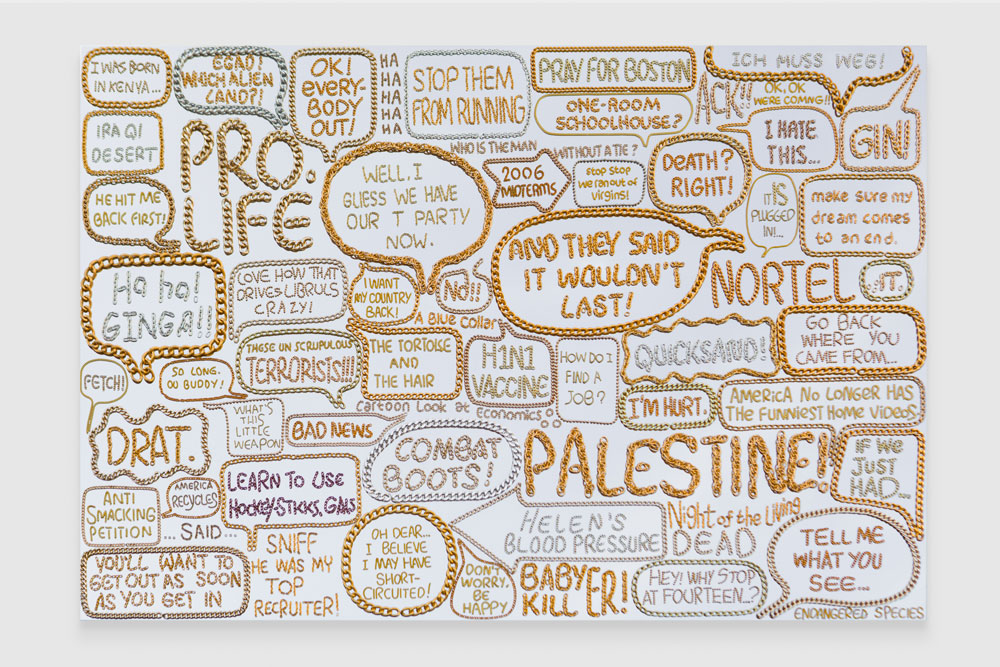 I WAS BORN
IN KENYA...
EGAD!
WHICH ALIEN
LAND?!
OK!
EVERY-
BODY
OUT!
HA
HA
HA
HA
HA
STOP THEM
FROM RUNNING
PRAY FOR BOSTON
ICH MUSS WEG!
ONE-ROOM
SCHOOLHOUSE?
ACK!!
OK, OK,
WE'RE COMING!!
IRAQI
DESERT
PRO.
LIFE
WHO IS THE MAN
WITHOUT A TIE?
I HATE
THIS...
GIN!
HE HIT ME
BACK FIRST!
WELL. I
GUESS WE HAVE
OUR T PARTY
NOW.
2006
MIDTERMS
Stop Stop
we ran out of
virgins!
DEATH?
RIGHT!
IT IS
PLUGGED
IN!...
make sure my
dream comes
to an end.
AND THEY SAID
IT WOULDN'T
LAST!
Ha ha!
GINGA!!
LOVE HOW THAT
DRIVES LIBRULS
CRAZY!
I WANT
MY COUNTRY
BACK!
NO!!
NORTEL
:IT.
A Blue Collar
THESE UN SCRUPULOUS
TERRORISIS!!!
THE TORTOISE
AND
THE HAIR
H1N1
VACCINE
HOW DO I
FIND A
JOB?
QUICKSAND!
GO BACK
WHERE YOU
CAME FROM...
FETCH!
SO LONG.
OU BUDDY!
Cartoon Look at Economics
I'M HURT.
AMERICA NO LONGER HAS
THE FUNNIEST HOME VIDEOS.
DRAT.
WHAT'S
THIS
LITTLE
WEAPON
BAD NEWS
COMBAT
BOOTS!
PALESTINE!
IF WE
JUST
HAD...
ANTI
SMACKING
PETITION
AMERICA
RECYCLES
... SAID ...
LEARN TO USE
HOCKEY-STICKS, GALS
SNIFF
HE WAS MY
TOP
RECRUITER!
OH DEAR...
I BELIEVE
I MAY HAVE
SHORT-
CIRCUITED!
HELEN'S
BLOOD PRESSURE
Night of the Living
DEAD
TELL ME
WHAT YOU
SEE...
YOU'LL WANT TO
GET OUT AS SOON
AS YOU GET IN
DON'T
WORRY,
BE
HAPPY
BABY
KILLER!
HEY! WHY STOP
AT FOURTEEN...?
ENDANGERED SPECIES